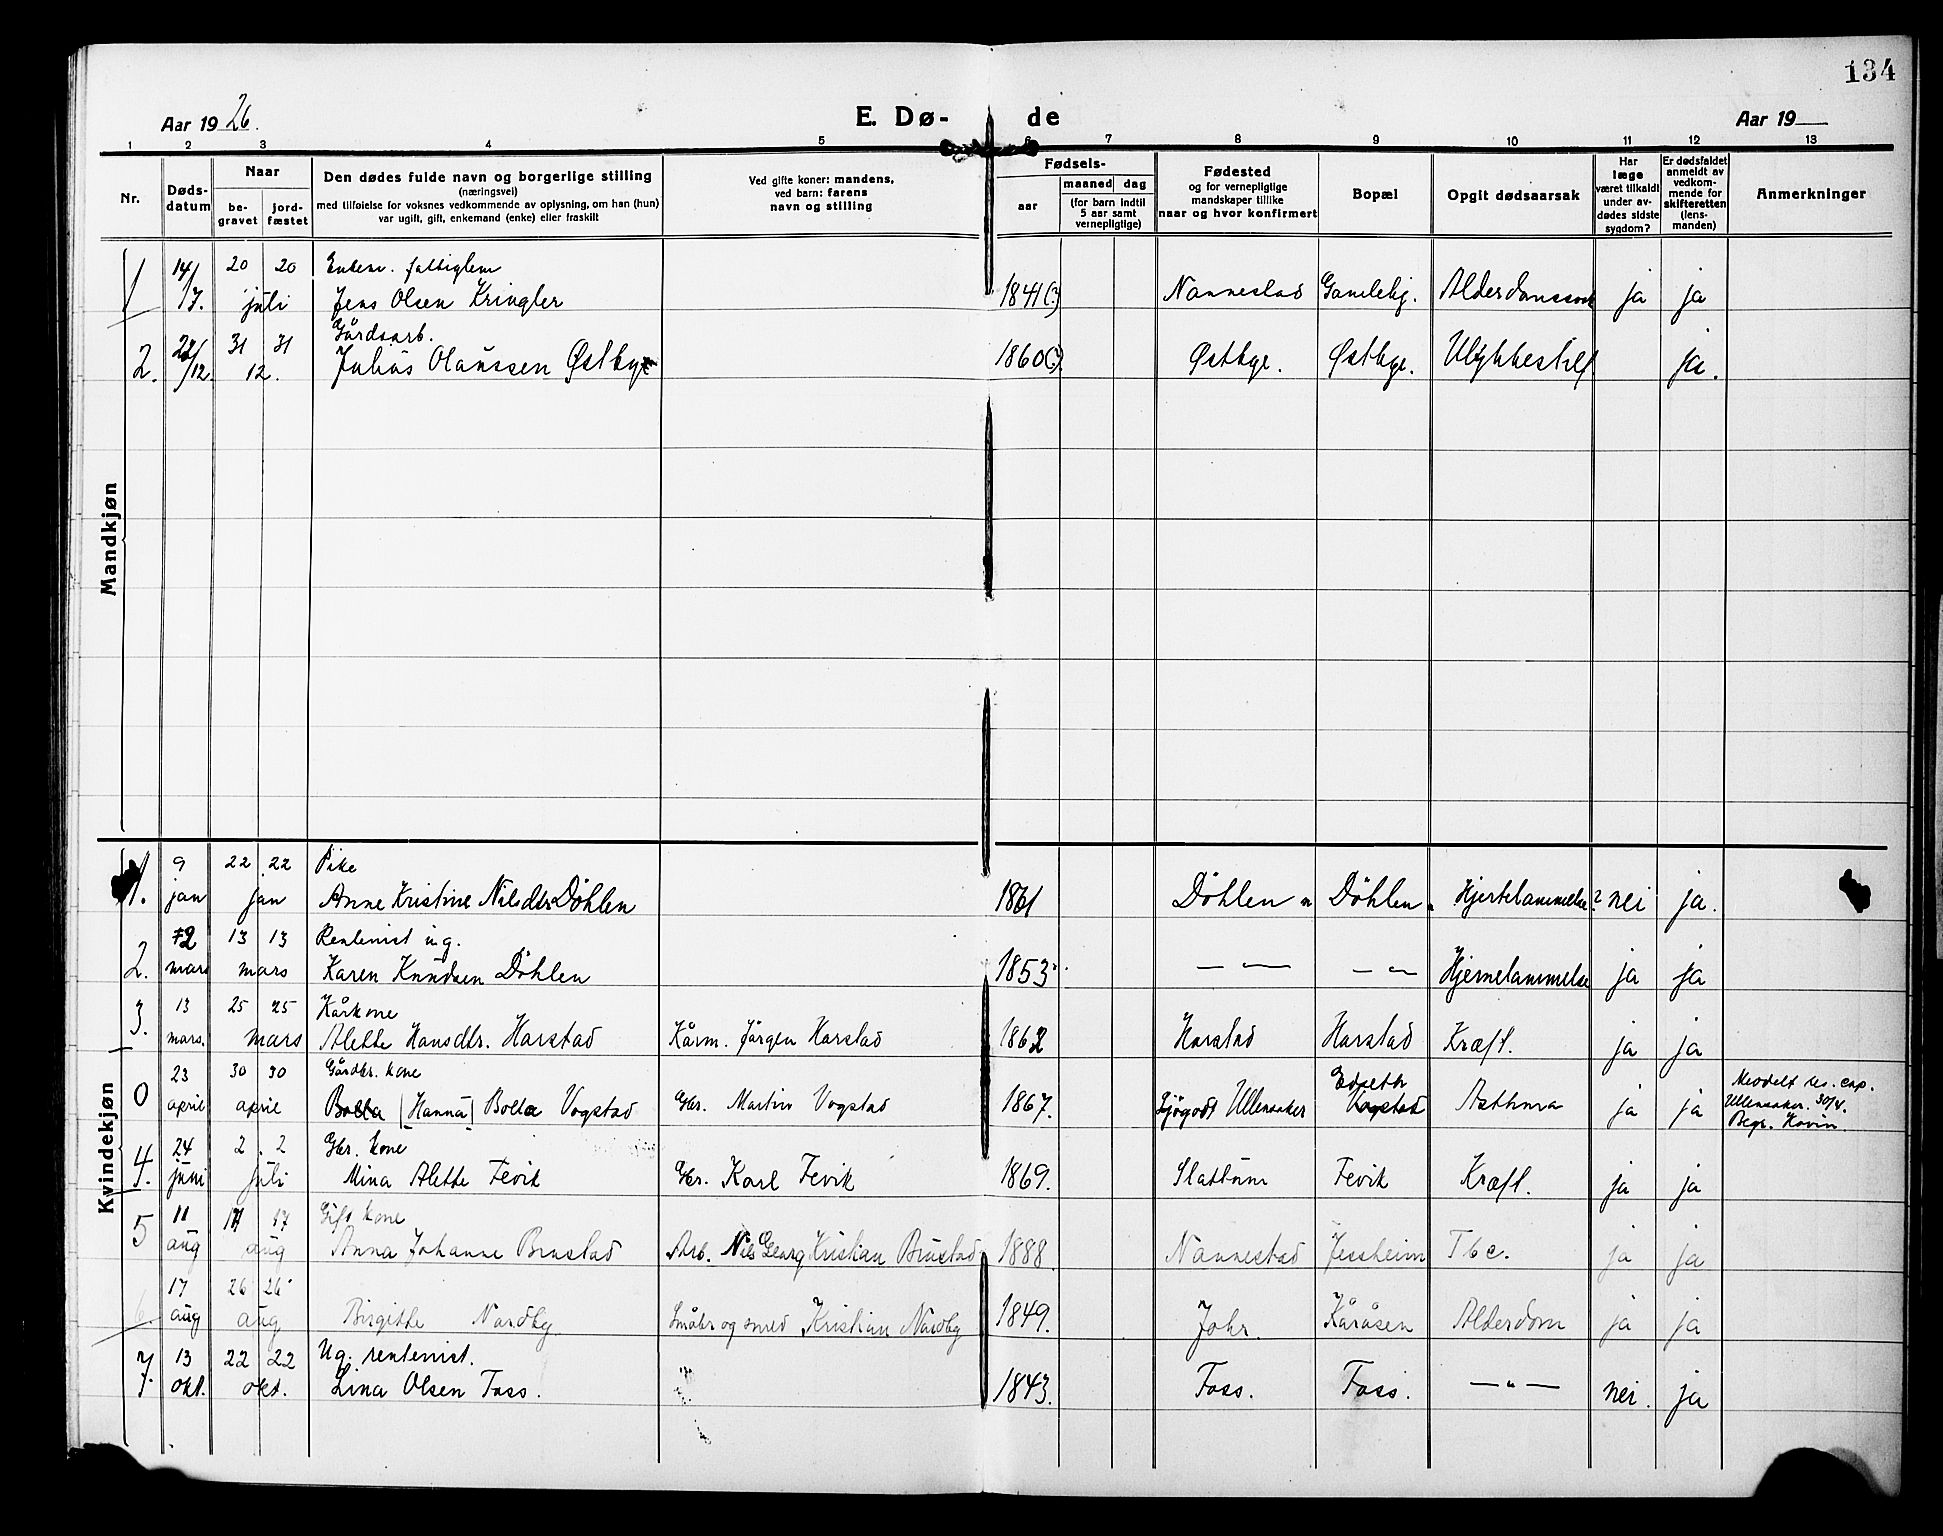 134
Aar 1926.
E. Dø- de
Aar 19
1 2 3 4 5 6 7 8 9 10 11 12 13
Nr.
Døds-
datum
Naar
be-
gravet
jord-
fæstet
Den dødes fulde navn og borgerlige stilling
(næringsvei)
med tilføielse for voksnes vedkommende av oplysning, om han (hun)
var ugift, gift, enkemand (enke) eller fraskilt
Ved gifte koner: mandens,
ved barn: farens
navn og stilling
Fødsels-
aar
maaned dag
(for barn indtil
5 aar samt
vernepligtige)
Fødested
og for vernepligtige
mandskaper tillike
naar og hvor konfirmert
Bopæl
Opgit dødsaarsak
Har
læge
været tilkaldt
under av-
dødes sidste
sygdom?
Er dødsfaldet
anmeldt av
vedkom-
mende for
skifteretten
(lens-
manden)
Anmerkninger
Mandkjøn
14/ 20 20 Enkem. fattiglem
1 /7. juli Jens Olsen Kringler 1841(?) Nannestad Gamlehj. ja ja
31 31 Gårdsarb.
2. /12. 12. Julius Olaussen Østbye 1860(?) Østbye. Østbye. Ulykkestilf ja.
Kvindekjøn
9 22 22 Pike
1. jan jan Anne Kristine Nilsdtr Döhlen 1861 Döhlen Döhlen Hjertelammelse? nei ja.
13 13 Rentenist ug.
2. mars mars Karen Knudsen Döhlen 1853 — " — — " — Hjernelammelse ja ja
13 25 25 Kårkone
3. mars. mars Alette Hansdtr. Harstad Kårm. Jörgen Harstad 1862 Harstad Harstad Kræft. ja ja
23 30 30 Gårdbr. kone
0 april april Bolla (Hanna) Bolla Vogstad Gbr. Martin Vogstad 1867. Ullensaker Vogstad Asthma ja ja
Meddelt res. cap.
Ullensaker. 30/4.
Begr. Hovin.
24 2 2 Gbr. kone
4. juni juli Mina Alette Fevik Gbr. Karl Fevik 1869. Slattum Fevik Kræft. ja ja
11 17 17 Gift kone
5 aug aug Anna Johanne Brustad Arb. Nils Georg Kristian Brustad 1888 Nannestad Jessheim Tbc. ja ja
17 26 26
6 aug aug Birgitte Nordby Småbr og smed Kristian Nordby 1849. Johr. Kåråsen Alderdom ja ja
13 22 22 Ug. rentenist.
7. okt. okt. Lina Olsen Foss. 1843. Foss. Foss. — " — nei. ja